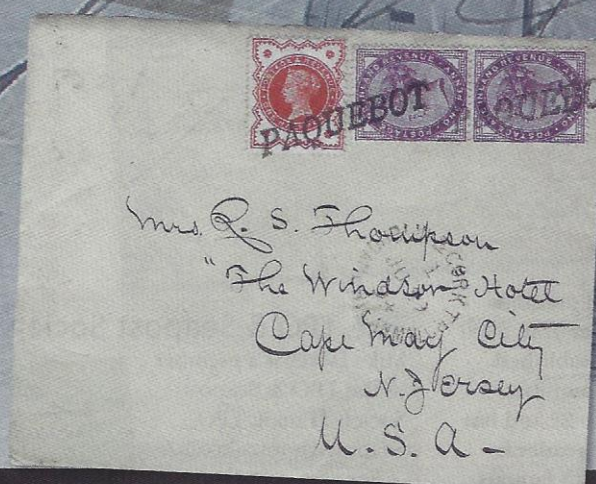 PAQUEBOT
Mrs. R. S. Thompson
"The Windsor Hotel
Cape May City
N. Jersey
U. S. A -